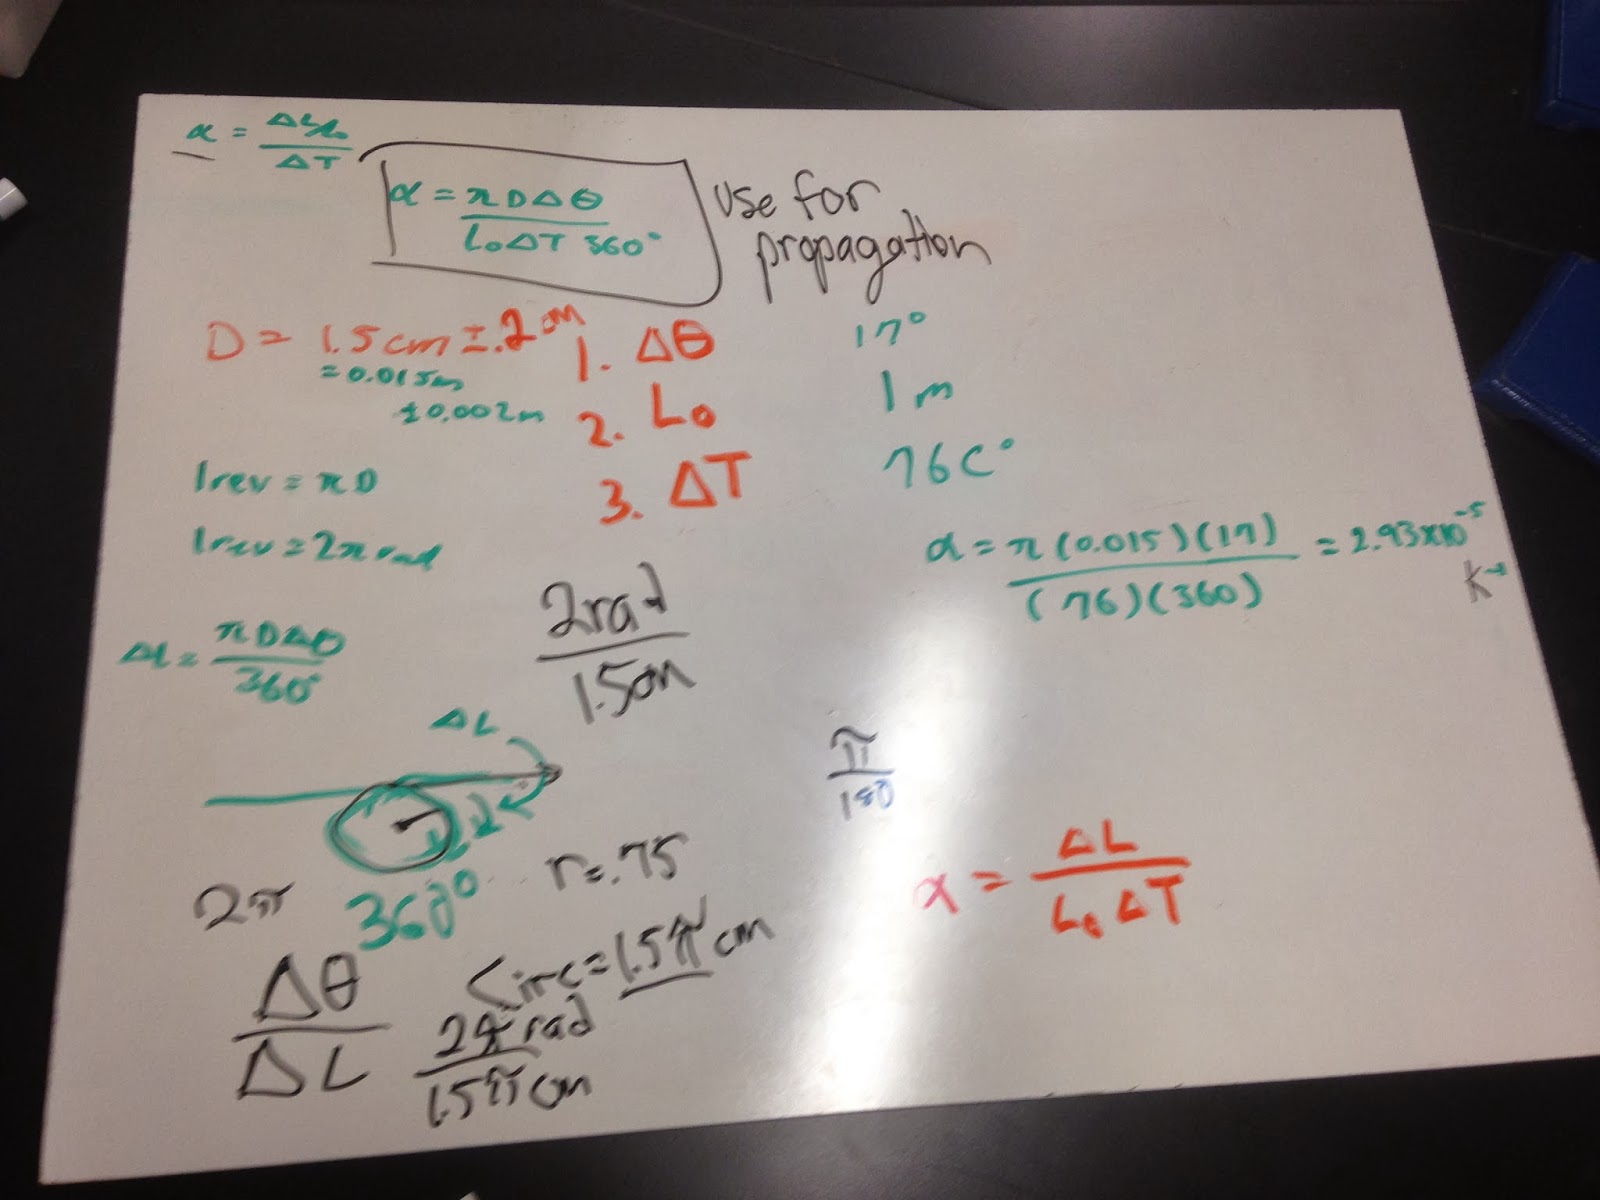 α = ΔL/L₀ / ΔT
α = πDΔθ / L₀ΔT 360°
use for
propagation
D = 1.5cm ± .2cm
= 0.015m
±0.002m
1. Δθ 17°
2. L₀ 1m
3. ΔT 76C°
1rev = πD
1rev = 2π rad
α = π(0.015)(17) / (76)(360) = 2.93x10⁻⁵
K⁻¹
2rad / 1.5cm
ΔL = πDΔθ / 360°
ΔL
π / 180
r=.75
2π
360°
α = ΔL / L₀ΔT
Circ = 1.5π cm
Δθ / ΔL
2π rad / 1.5π cm